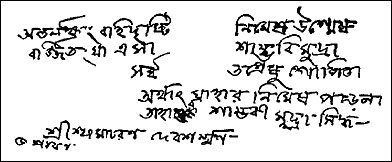 অন্তর্লক্ষ্য বহির্দৃষ্টি নিমেষ উন্মেষ
বর্জিত যা এ সা শাম্ভবি মুদ্রা
সর্ব্ব তন্ত্রেষু গোপিতা
অর্থাৎ যাহার নিমেষ পড়েনা
তাহার শাম্ভবী মুদ্রা সিদ্ধ
শ্রী শ্যামাচরণ দেবশর্ম্মণ